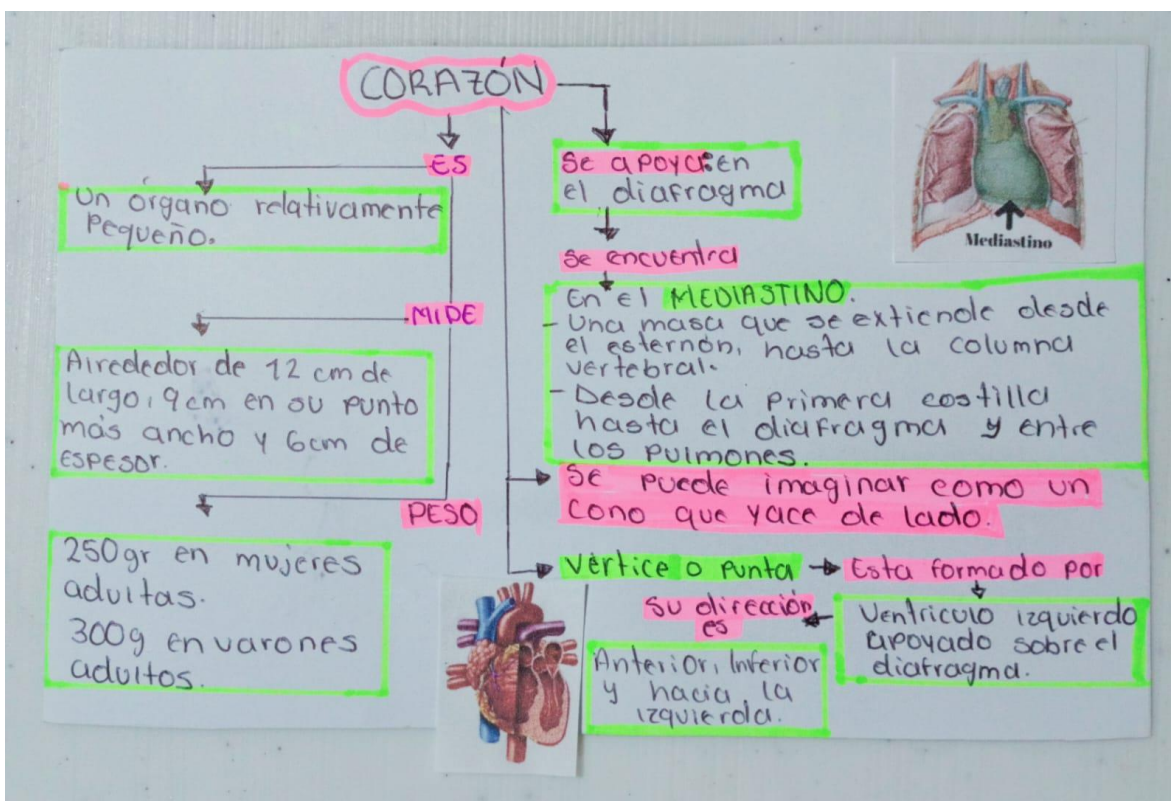 CORAZÓN
ES
Un órgano relativamente
Pequeño.
MIDE
Alrededor de 12 cm de
largo, 9cm en su punto
más ancho y 6cm de
espesor.
PESO
250gr en mujeres
adultas.
300g en varones
adultos.
Se apoya: en
el diafragma
Se encuentra
En el MEDIASTINO.
- Una masa que se extiende desde
el esternón, hasta la columna
vertebral.
- Desde la primera costilla
hasta el diafragma y entre
los pulmones.
Se puede imaginar como un
cono que yace de lado.
Vértice o punta
Esta formado por
Ventriculo izquierdo
apoyado sobre el
diafragma.
Su dirección
es
Anterior, Inferior
y hacia la
izquierda.
Mediastino